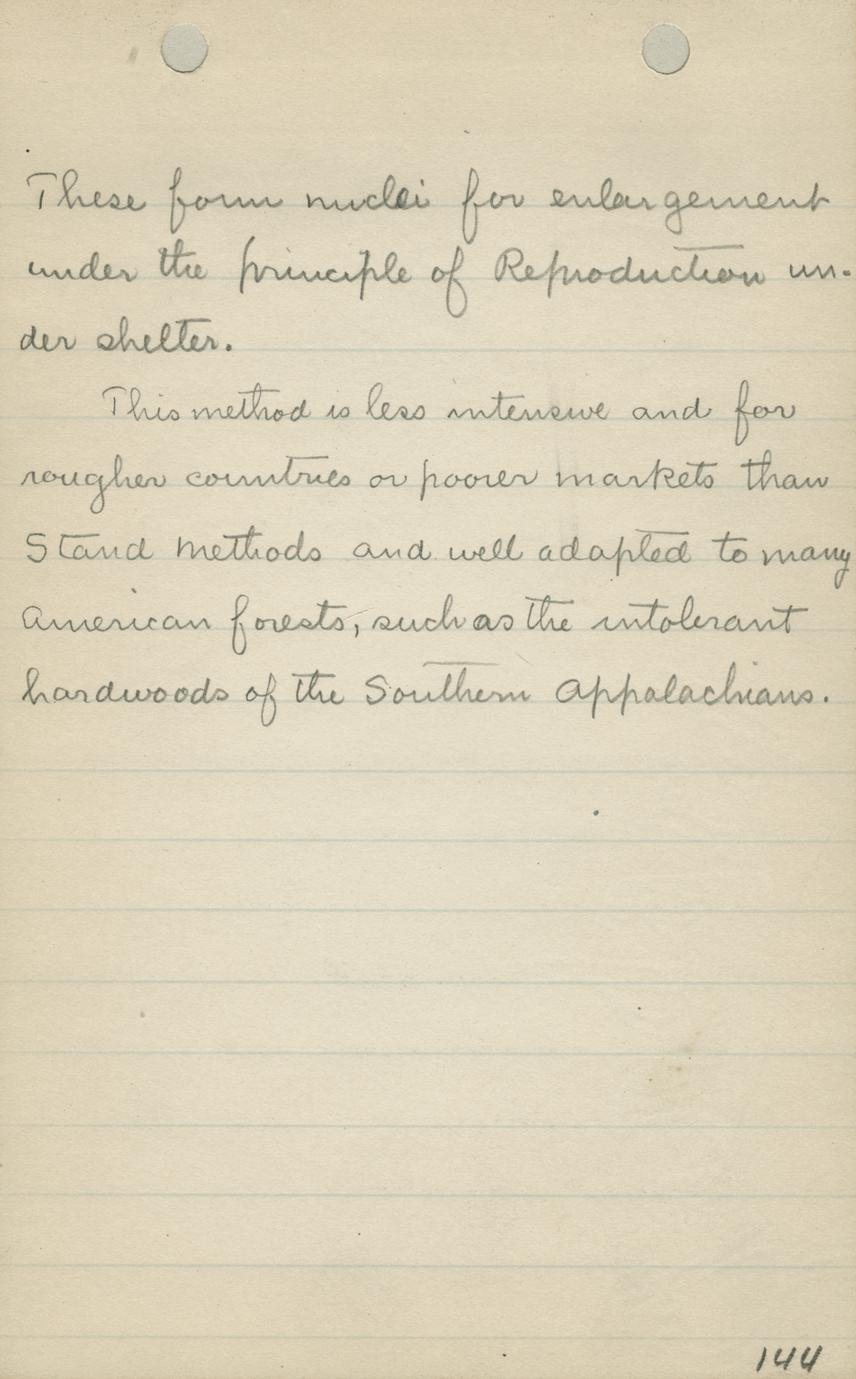 These form nuclei for enlargement
under the principle of Reproduction un-
der shelter.
This method is less intensive and for
rougher countries or poorer markets than
Stand methods and well adapted to many
American forests, such as the intolerant
hardwoods of the Southern Appalachians.
144